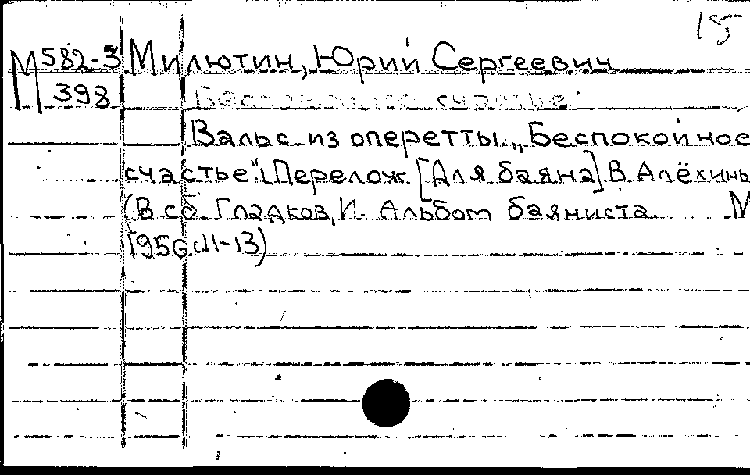 15
М 582-3 Милютин, Юрий Сергеевич
398 Беспокойное счастье
Вальс из оперетты „Беспокойное
счастье". Перелож. [Для баяна] В. Алёхины
(В сб. Гладков, И. Альбом баяниста. М
1956, 11-13)